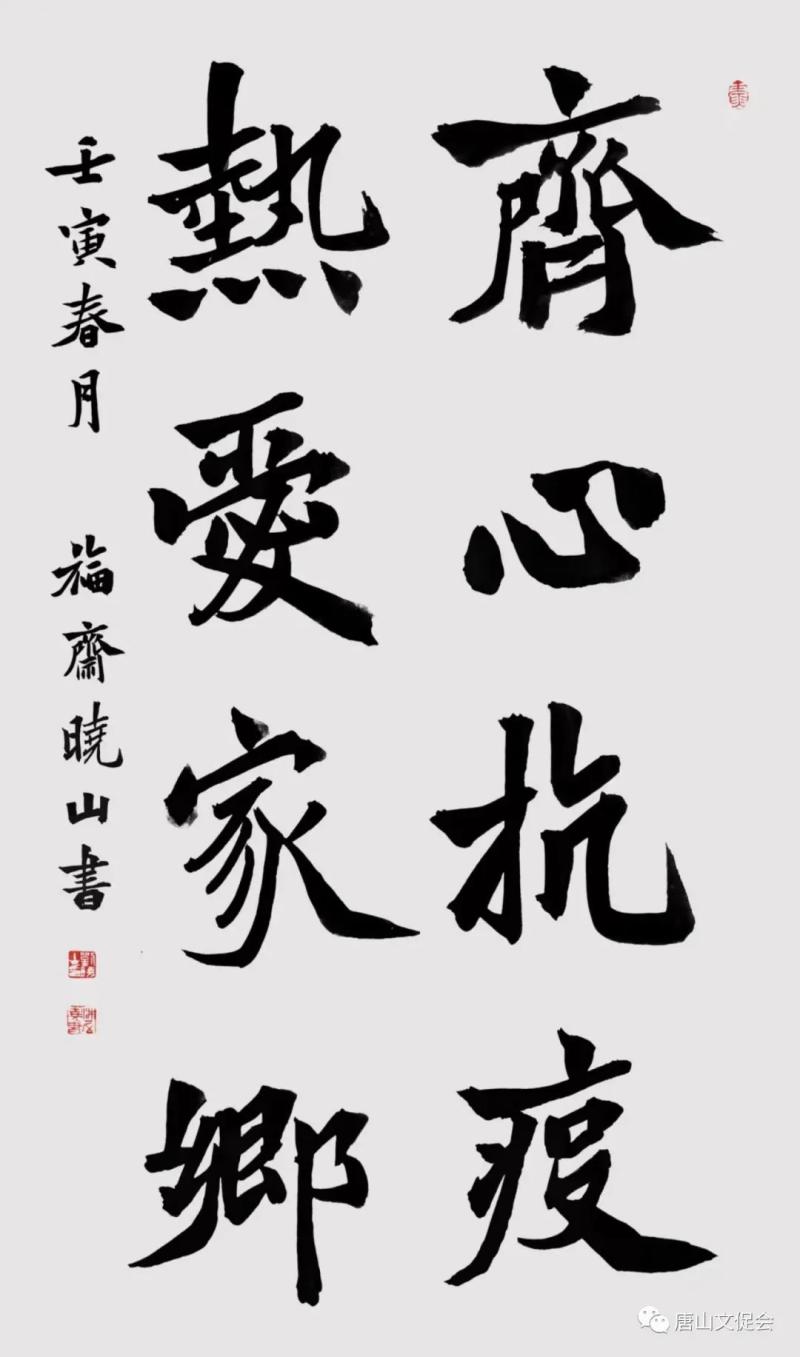 齊心抗疫
熱愛家鄉
壬寅春月 福齋曉山書
唐山文促会